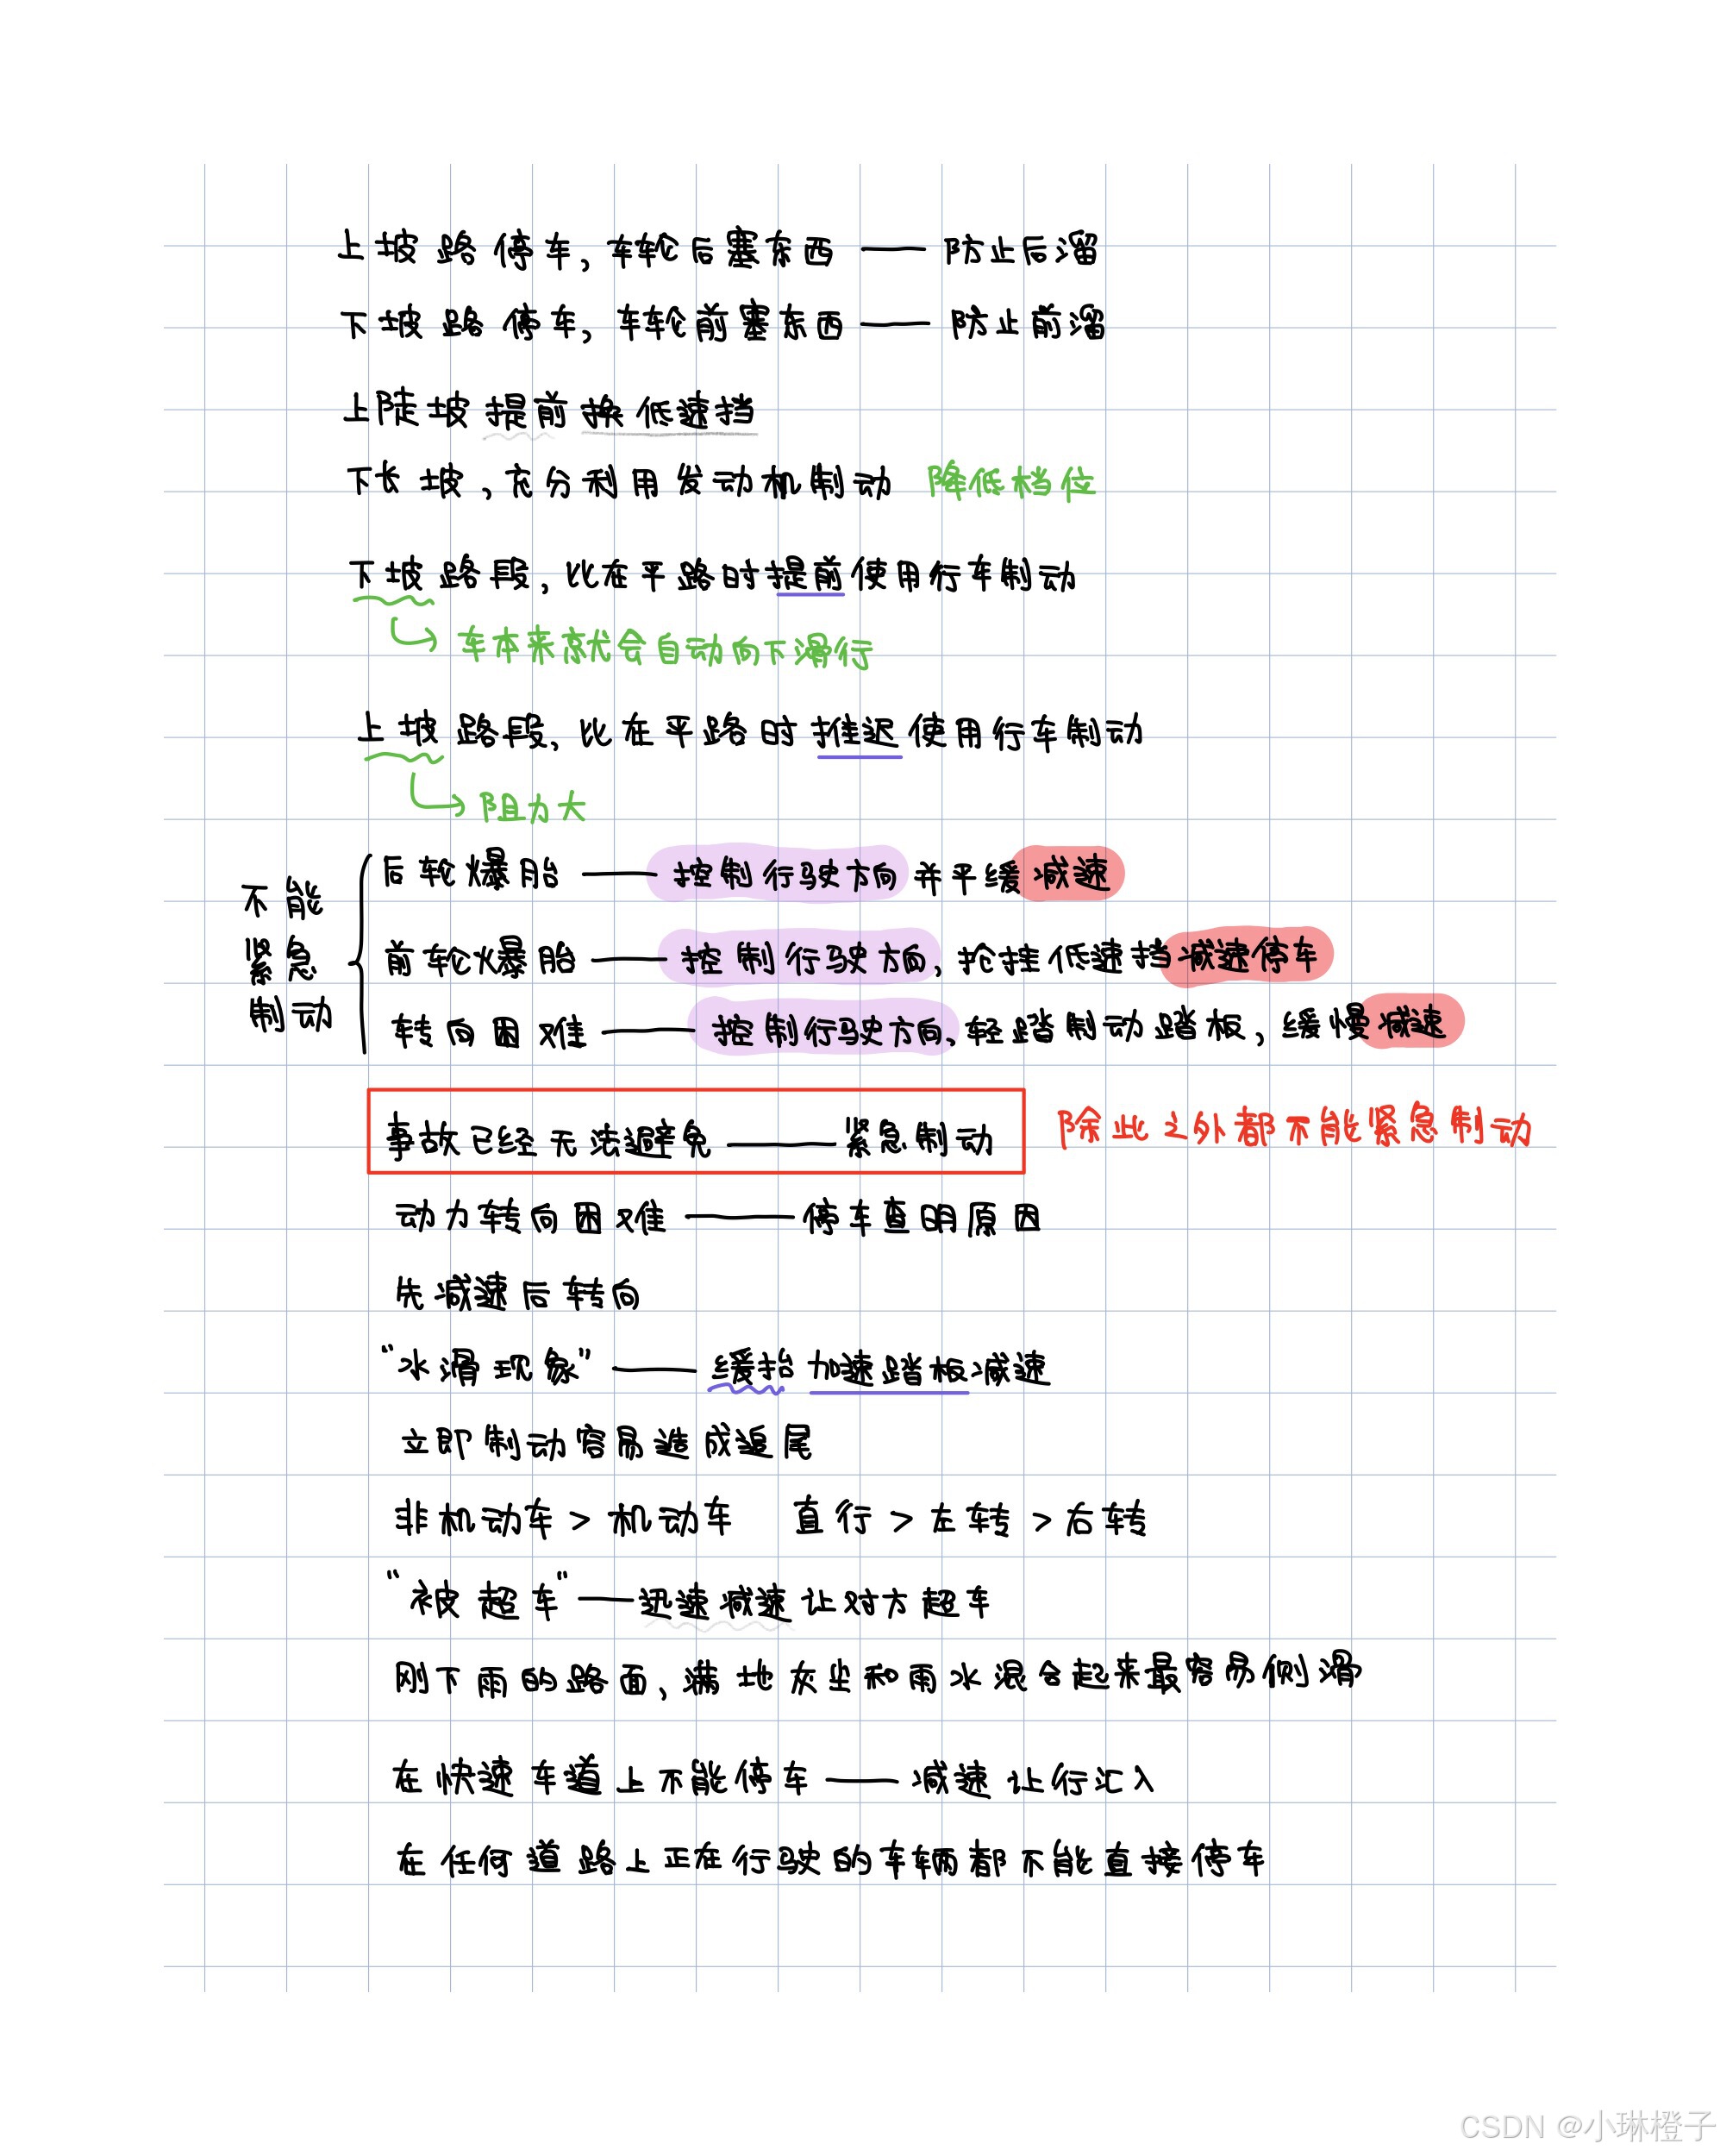 上坡路停车,车轮后塞东西 —— 防止后溜
下坡路停车,车轮前塞东西 —— 防止前溜
上陡坡提前换低速挡
下长坡,充分利用发动机制动 降低档位
下坡路段,比在平路时提前使用行车制动
车本来就会自动向下滑行
上坡路段,比在平路时推迟使用行车制动
阻力大
不能
紧急
制动
后轮爆胎 —— 控制行驶方向并平缓减速
前轮爆胎 —— 控制行驶方向,抢挂低速挡减速停车
转向困难 —— 控制行驶方向,轻踏制动踏板,缓慢减速
事故已经无法避免 —— 紧急制动 除此之外都不能紧急制动
动力转向困难 —— 停车查明原因
先减速后转向
"水滑现象" —— 缓抬加速踏板减速
立即制动容易造成追尾
非机动车 > 机动车 直行 > 左转 > 右转
"被超车" —— 迅速减速让对方超车
刚下雨的路面,满地灰尘和雨水混合起来最容易侧滑
在快速车道上不能停车 —— 减速让行汇入
在任何道路上正在行驶的车辆都不能直接停车
CSDN @小琳橙子